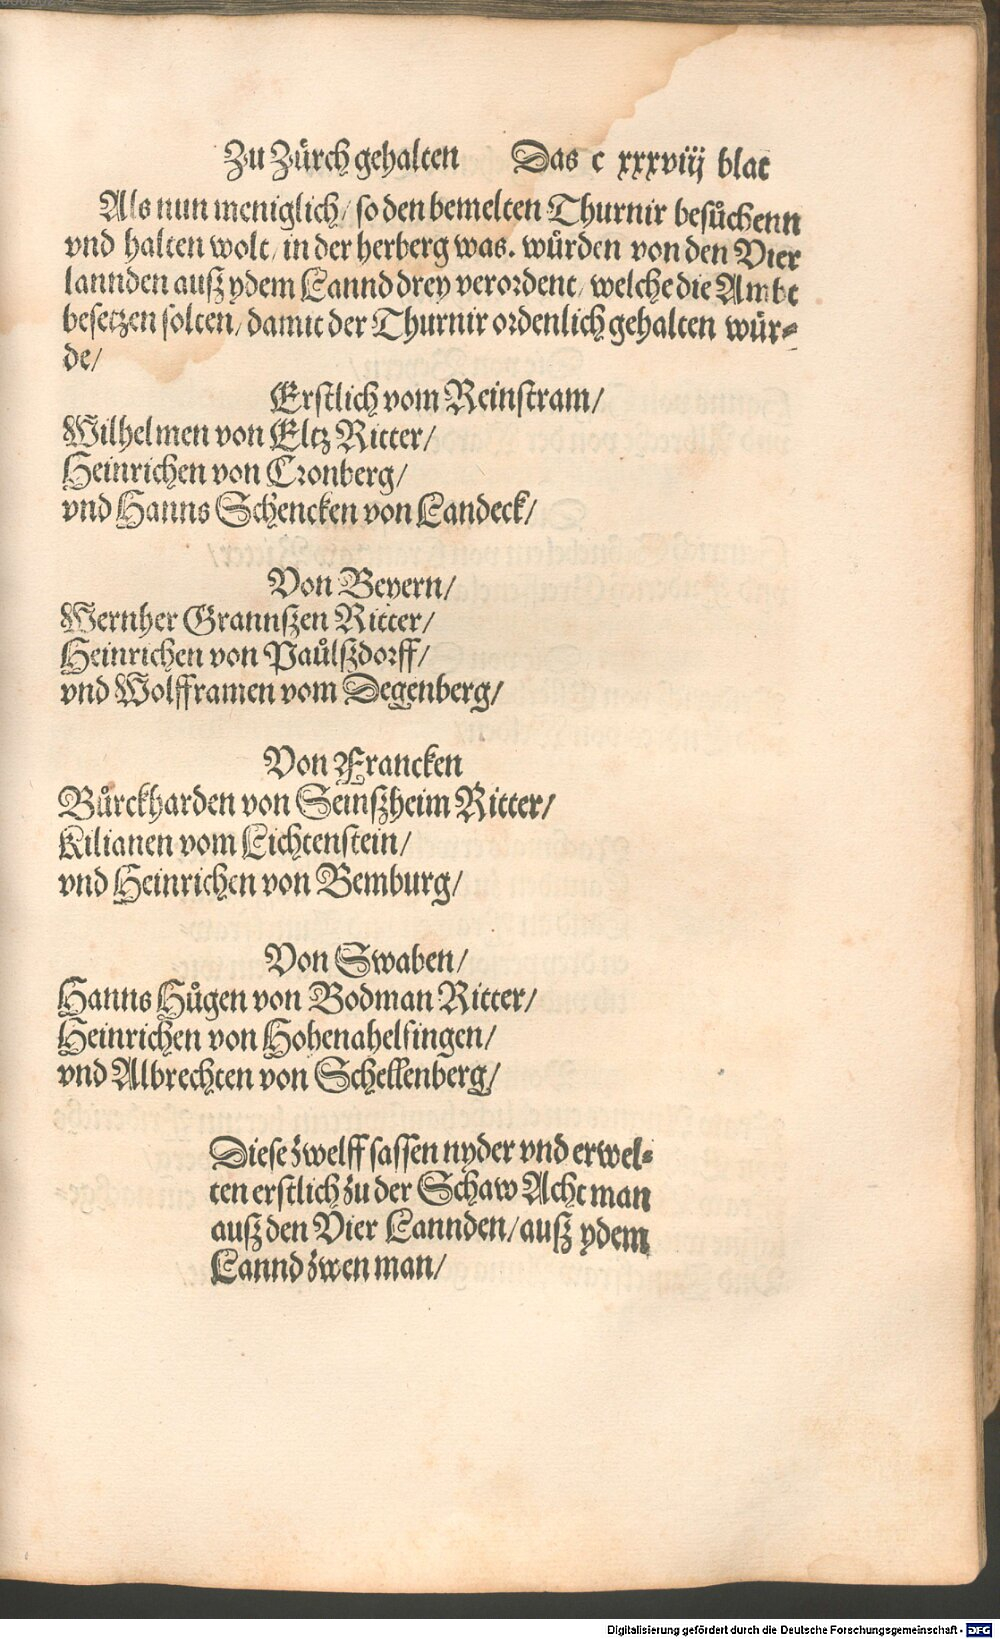 Zu Zürch gehalten Das c xxxviij blat
Als nun meniglich/ so den bemelten Thurnir besůchenn
vnd halten wolt/ in der herberg was. würden von den Vier
lannden auß ydem Lannd drey verordent/ welche die Ambt
besetzen solten/ damit der Thurnir ordenlich gehalten wür-
de/
Erstlich vom Reinstram/
Wilhelmen von Eltz Ritter/
Heinrichen von Cronberg/
vnd Hanns Schencken von Landeck/
Von Beyern/
Wernher Grannßen Ritter/
Heinrichen von Paůlßdorff/
vnd Wolfframen vom Degenberg/
Von Francken
Bůrckharden von Seinßheim Ritter/
Kilianen vom Lichtenstein/
vnd Heinrichen von Bemburg/
Von Swaben/
Hanns Hůgen von Bodman Ritter/
Heinrichen von Hohenahelfingen/
vnd Albrechten von Schellenberg/
Diese zwelff sassen nyder vnd erwel-
ten erstlich zu der Schaw Acht man
auß den Vier Lannden/ auß ydem
Lannd zwen man/
Digitalisierung gefördert durch die Deutsche Forschungsgemeinschaft - DFG